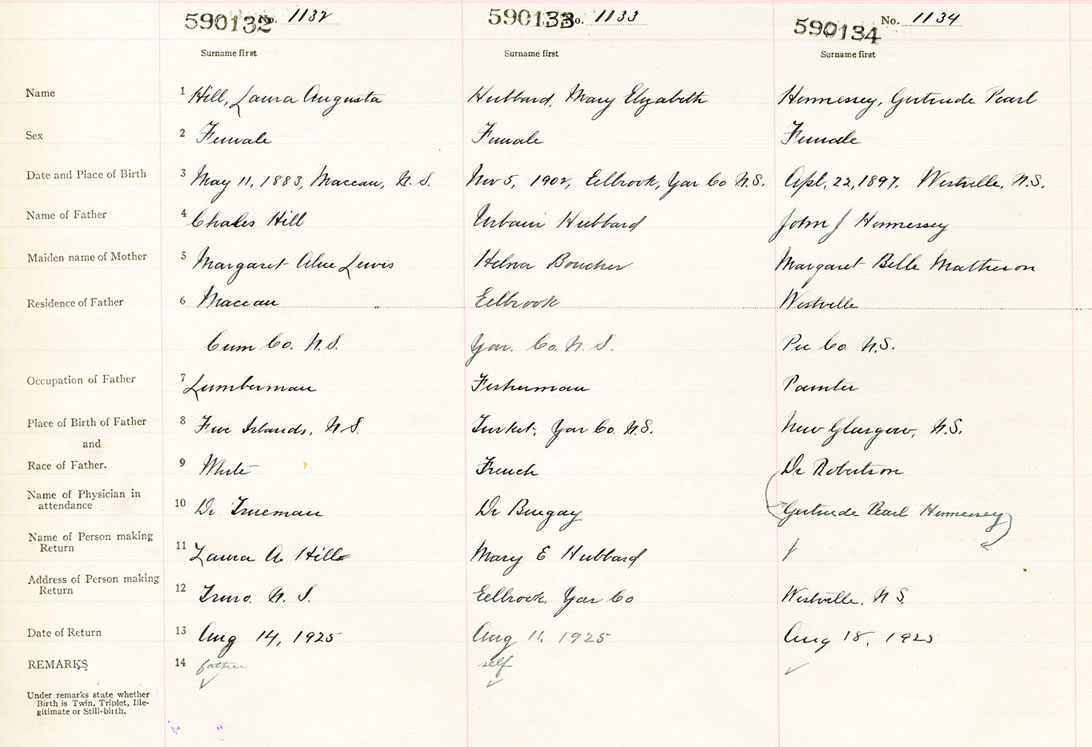 590132 No. 1132
590133 No. 1133
590134 No. 1134
Surname first
Surname first
Surname first
Name 1 Hill, Laura Augusta
Hubbard, Mary Elizabeth
Hennessey, Gertrude Pearl
Sex 2 Female
Female
Female
Date and Place of Birth 3 May 11, 1883, Maccan, N.S.
Nov 5, 1902, Eelbrook, Yar Co N.S.
Apl, 22, 1897. Westville, N.S.
Name of Father 4 Chales Hill
Urbain Hubbard
John J Hennessey
Maiden name of Mother 5 Margaret Alice Lewis
Boucher
Margaret Belle Matheson
Residence of Father 6 Maccan
Eelbrook
Westville
Cum Co. N.S.
Yar. Co. N.S.
Pic Co N.S.
Occupation of Father 7 Lumberman
Fisherman
Painter
Place of Birth of Father 8 Five Islands, N.S.
Tusket, Yar Co. N.S.
New Glasgow, N.S.
and
Race of Father. 9 White
French
Dr Robertson
Name of Physician in
attendance 10 Dr Trueman
Dr
Gertrude Pearl Hennessey
Name of Person making
Return 11 Laura A. Hill
Mary E Hubbard
Address of Person making
Return 12 Truro. N.S.
Eelbrook, Yar Co
Westville, N S.
Date of Return 13 Aug 14, 1925
Aug 11, 1925
Aug 18, 1925
REMARKS 14 father
self
Under remarks state whether
Birth is Twin, Triplet, Ille-
gitimate or Still-birth.